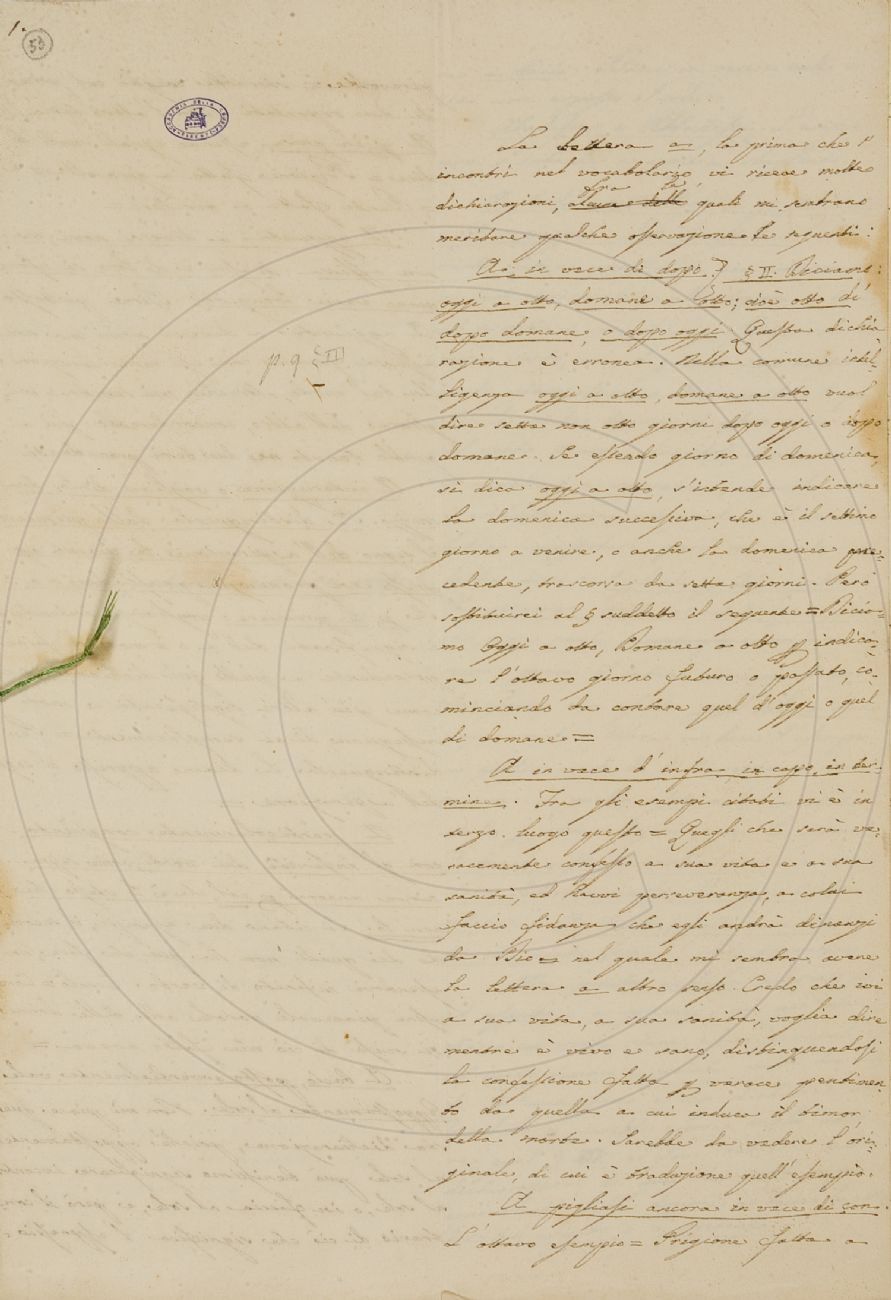 1.
50
p. 9 § III
La lettera a, la prima che s'
incontri nel vocabolario, vi riceve molte
dichiarazioni, fra le
alcune delle quali mi sembrano
meritare qualche osservazione le seguenti:
A, in vece di dopo } § II. Diciamo:
oggi a otto, domane a otto; cioè otto dì
dopo domane, o dopo oggi. Questa dichia
razione è erronea. Nella comune intel-
ligenza oggi a otto, domane a otto vuol
dire sette non otto giorni dopo oggi o dopo
domane. Se essendo giorno di domenica,
si dica oggi a otto, s'intende indicare
la domenica successiva, che è il settimo
giorno a venire, o anche la domenica pre-
cedente, trascorsa da sette giorni. Però
sostituirei al § suddetto il seguente = Dicia-
mo Oggi a otto, Domane a otto p indica-
re l'ottavo giorno futuro o passato, co-
minciando da contare quel d'oggi o quel
di domane =
A in vece d'infra, in capo, in ter-
mine. Fra gli esempi citati vi è in
terzo luogo questo = Quegli che sarà ve-
racemente confesso a sua vita e a sua
sanità, ed havvi perseveranza, a colui
faccio fidanza che egli andrà dinanzi
da Dio = nel quale mi sembra avere
la lettera a altro senso. Credo che ivi
a sua vita, a sua sanità, voglia dire
mentre è vivo e sano, distinguendosi
la confessione fatta p verace pentimen
to da quella a cui induca il timor
della morte. Sarebbe da vedere l'ori-
ginale, di cui è traduzione quell'esempio.
A pigliasi ancora in vece di con.
L'ottavo esempio = Prigione fatta a